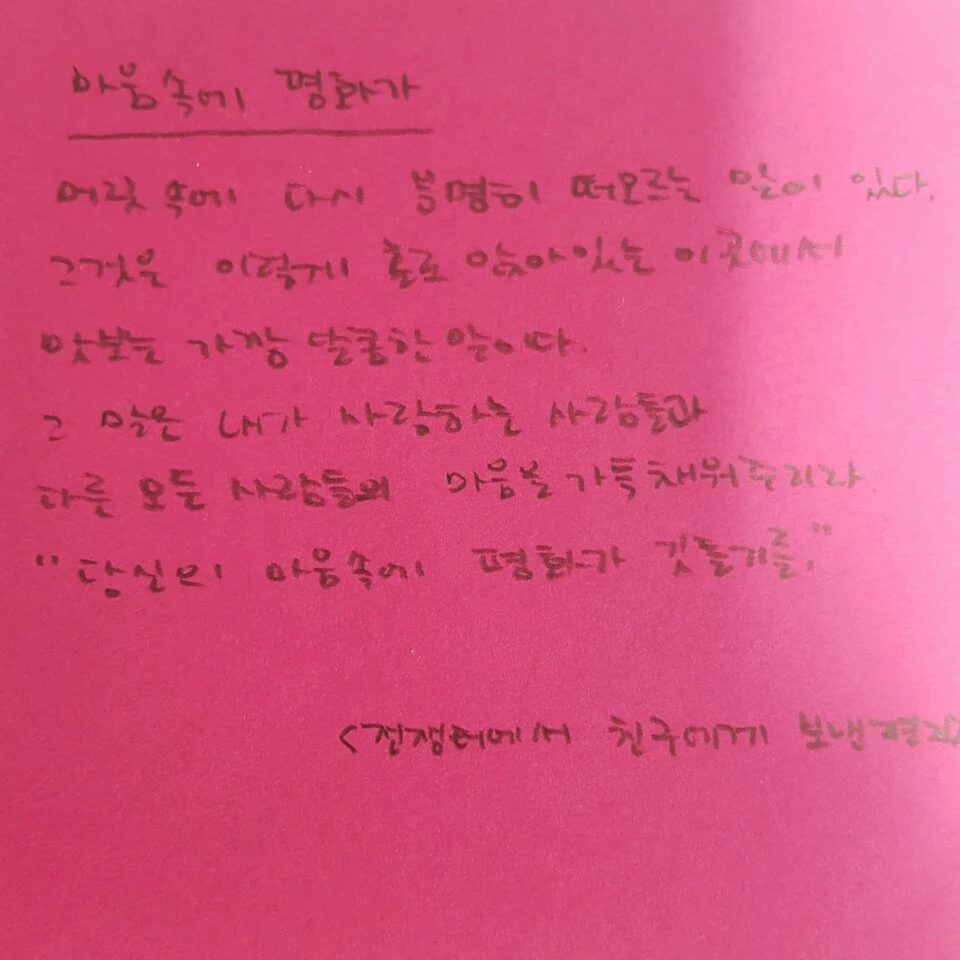 마음속에 평화가
머릿속에 다시 분명히 떠오르는 말이 있다.
그것은 이렇게 홀로 앉아있는 이곳에서
맛보는 가장 달콤한 말이다.
그 말은 내가 사랑하는 사람들과
다른 모든 사람들의 마음을 가득채워주리라.
"당신의 마음속에 평화가 깃들기를."
<전쟁터에서 친구에게 보낸편지